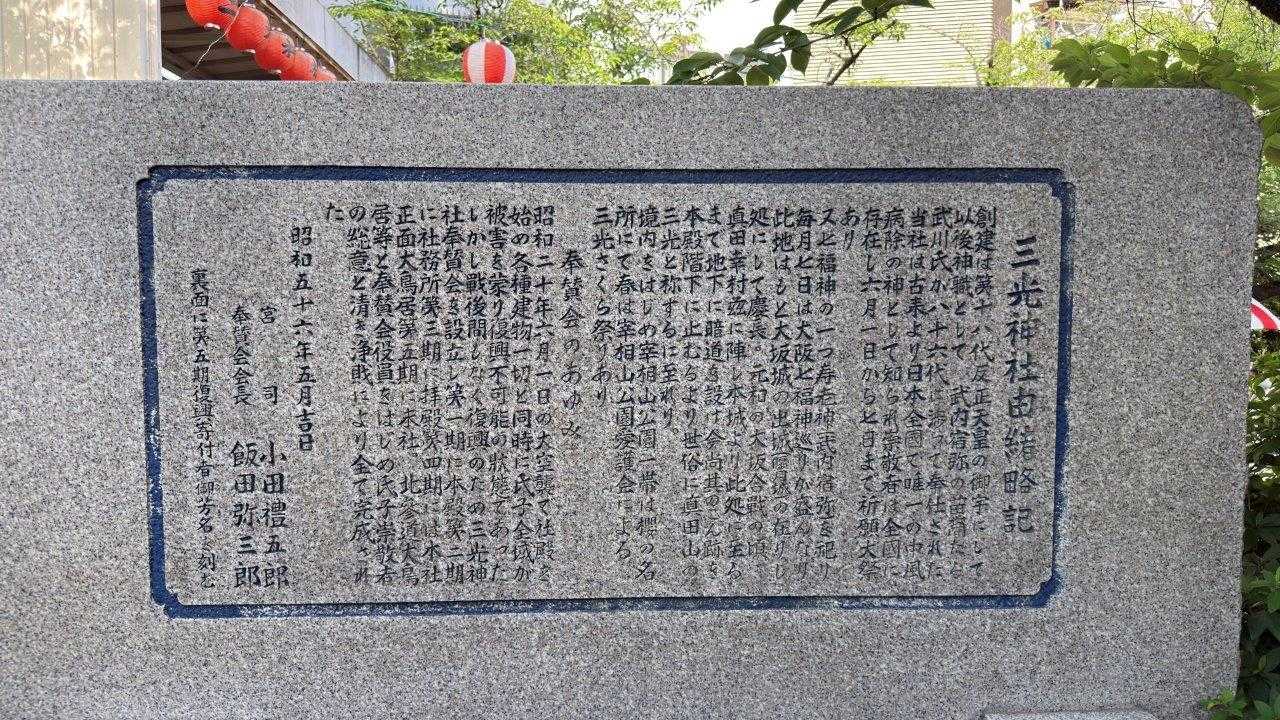 三光神社由緒略記
創建は第十八代反正天皇の御宇にして
以後神職として 武内宿弥の苗裔たる
武川氏が八十六代に渉って奉仕された
当社は古来より日本全国で唯一の中風
病除の神として知られ崇敬者は全国に
存在し六月一日から七日まで祈願大祭
あり
又七福神の一つ寿老神武内宿弥を祀り
毎月七日は大阪七福神巡りが盛んなり
此地はもと大坂城の出城 の在りし
処にして慶長、元和の大阪合戦の頃
真田幸村玆に陣し本城より此処に至る
まで地下に暗道を設け今尚其のぬけ跡を
本殿階下に止むるより世俗に真田山の
三光と称するに至れり
境内をはじめ宰相山公園一帯は櫻の名
所にて春は宰相山公園愛護会による
三光さくら祭りあり
奉賛会のあゆみ
昭和二十年六月一日の大空襲で社殿を
始め各種建物一切と同時に氏子全域が
被害を蒙り復興不可能の状態であった
しかし戦後間もなく復興のため三光神
社奉賛会を設立し第一期に本殿第二期
に社務所第三期に拝殿第四期には本社
正面大鳥居第五期に末社、北参道大鳥
居等と奉賛会役員をはじめ氏子崇敬者
の総意と清き浄財により全て完成され
た
昭和五十六年五月吉日
宮司 小田禮五郎
奉賛会会長 飯田弥三郎
裏面に第五期復興寄付者御方名を刻む